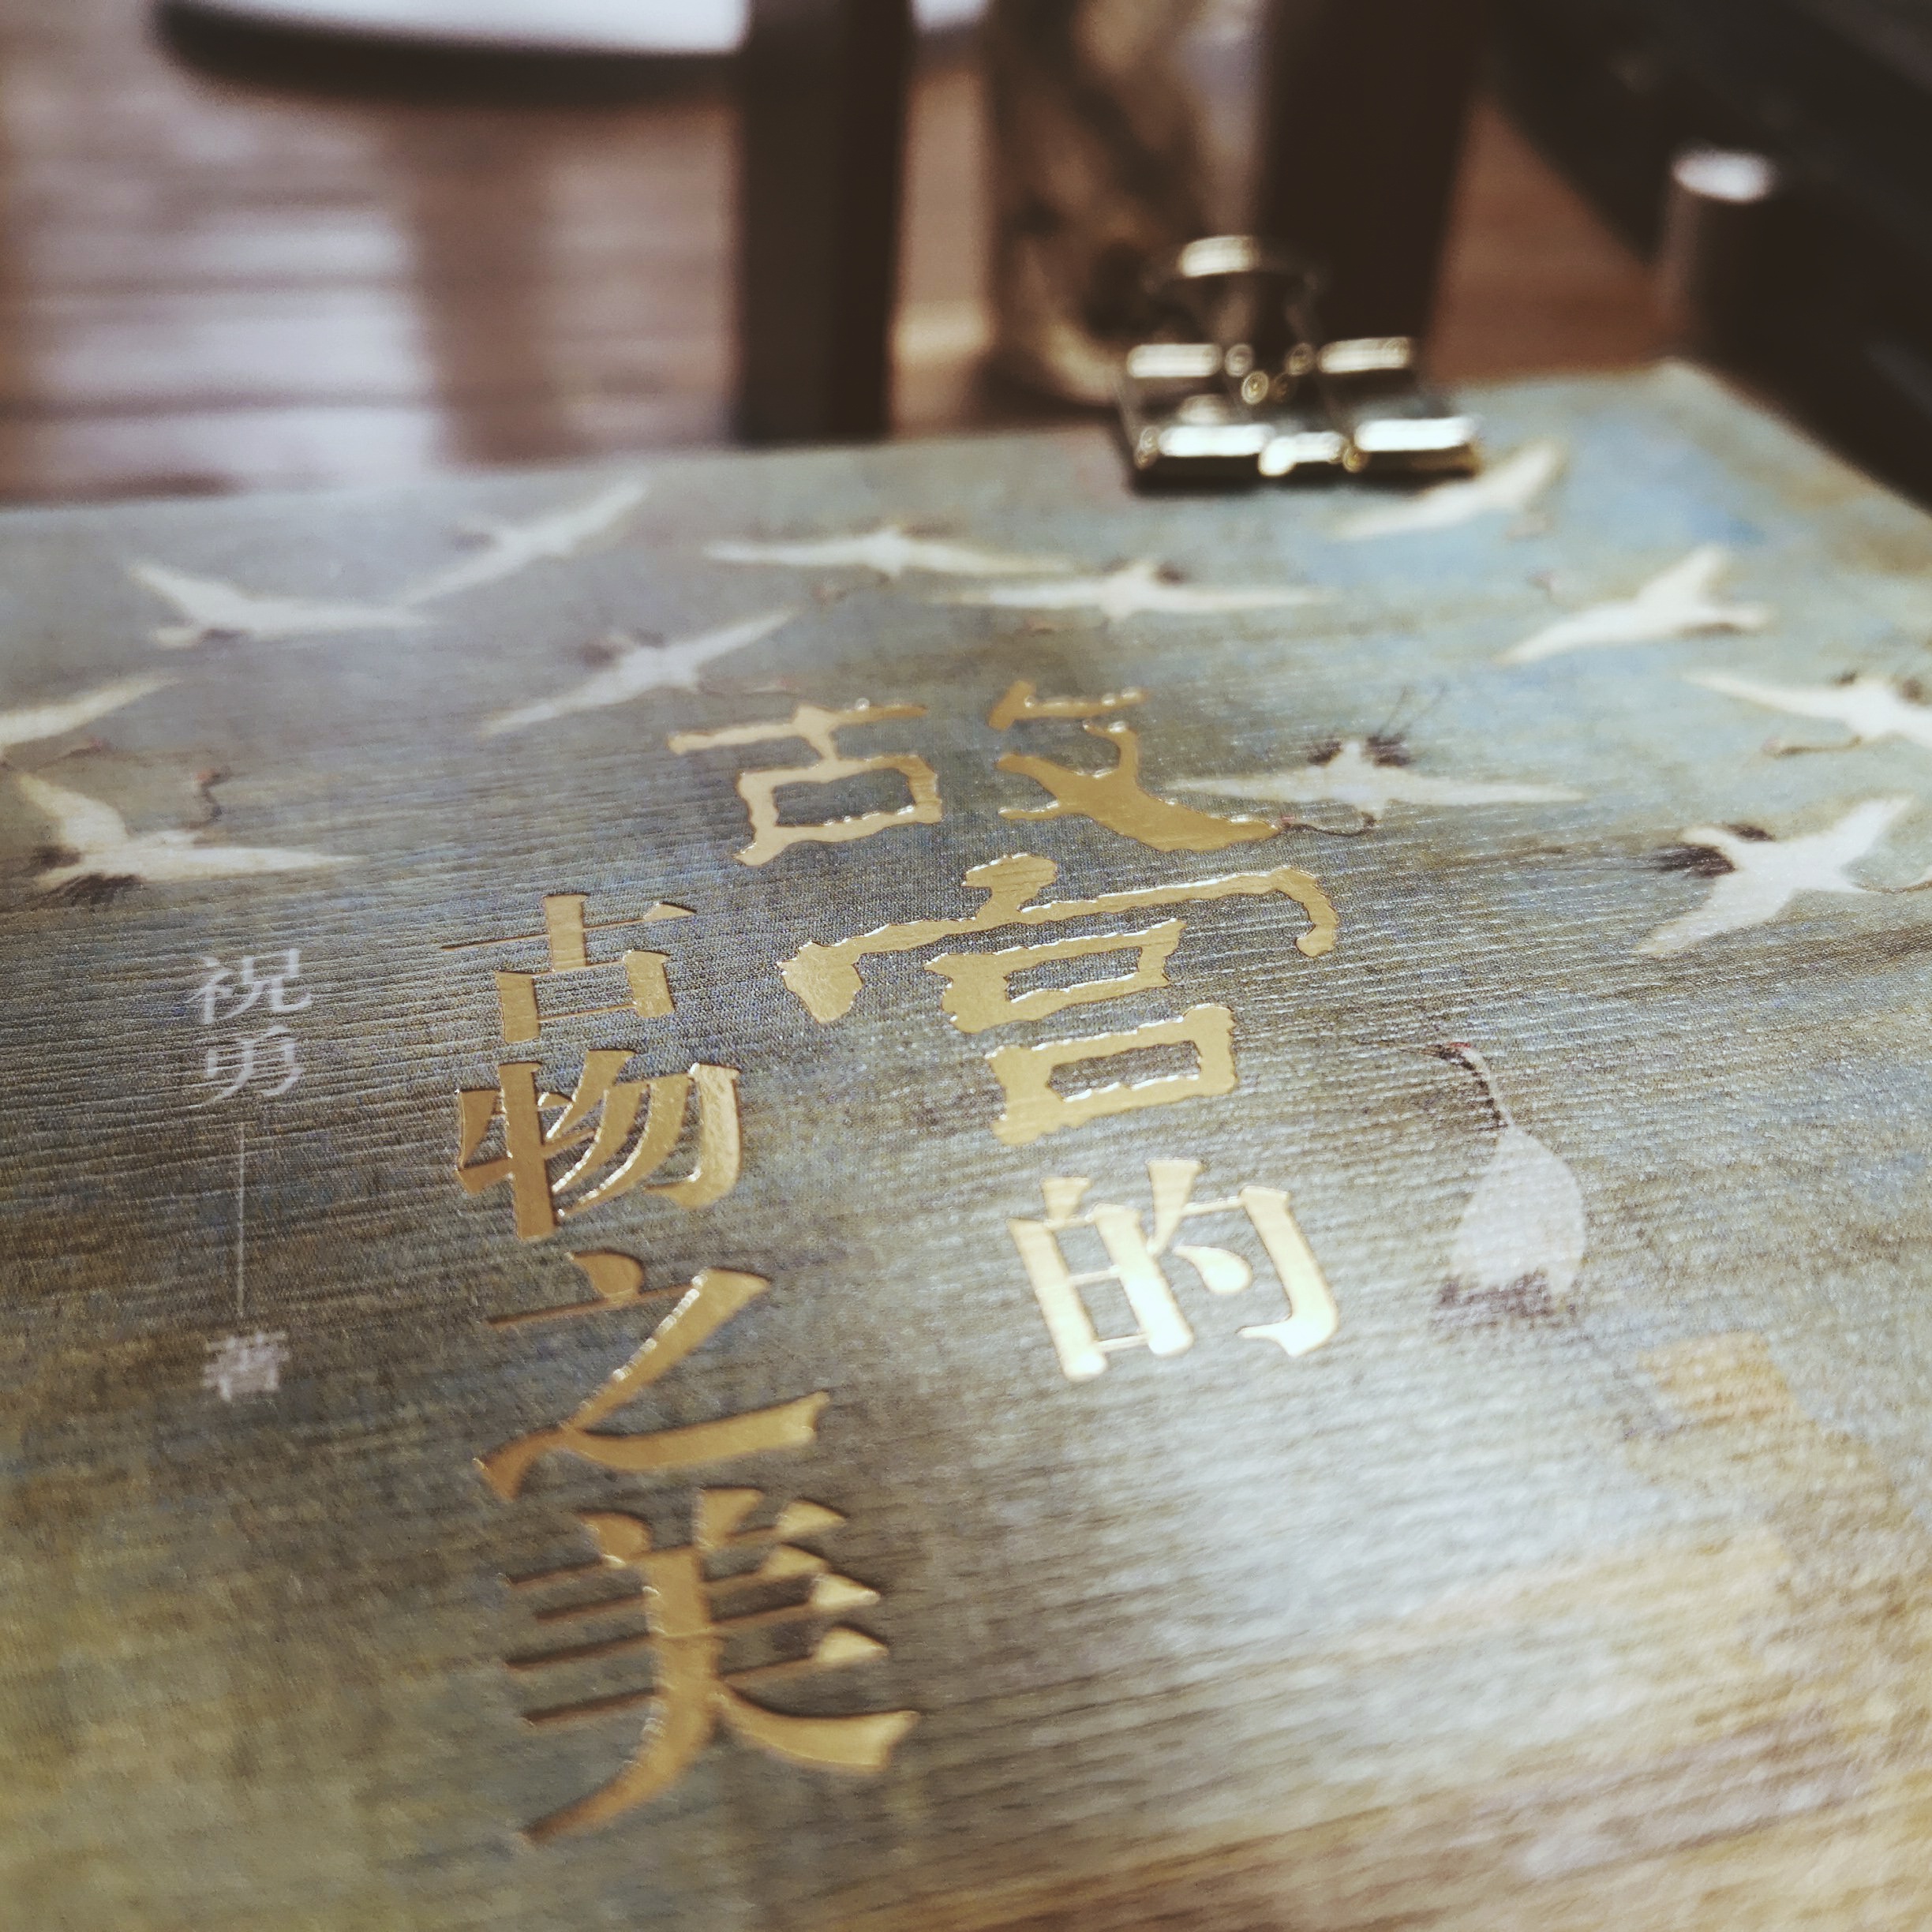 故宫的
古物之美
祝勇 著